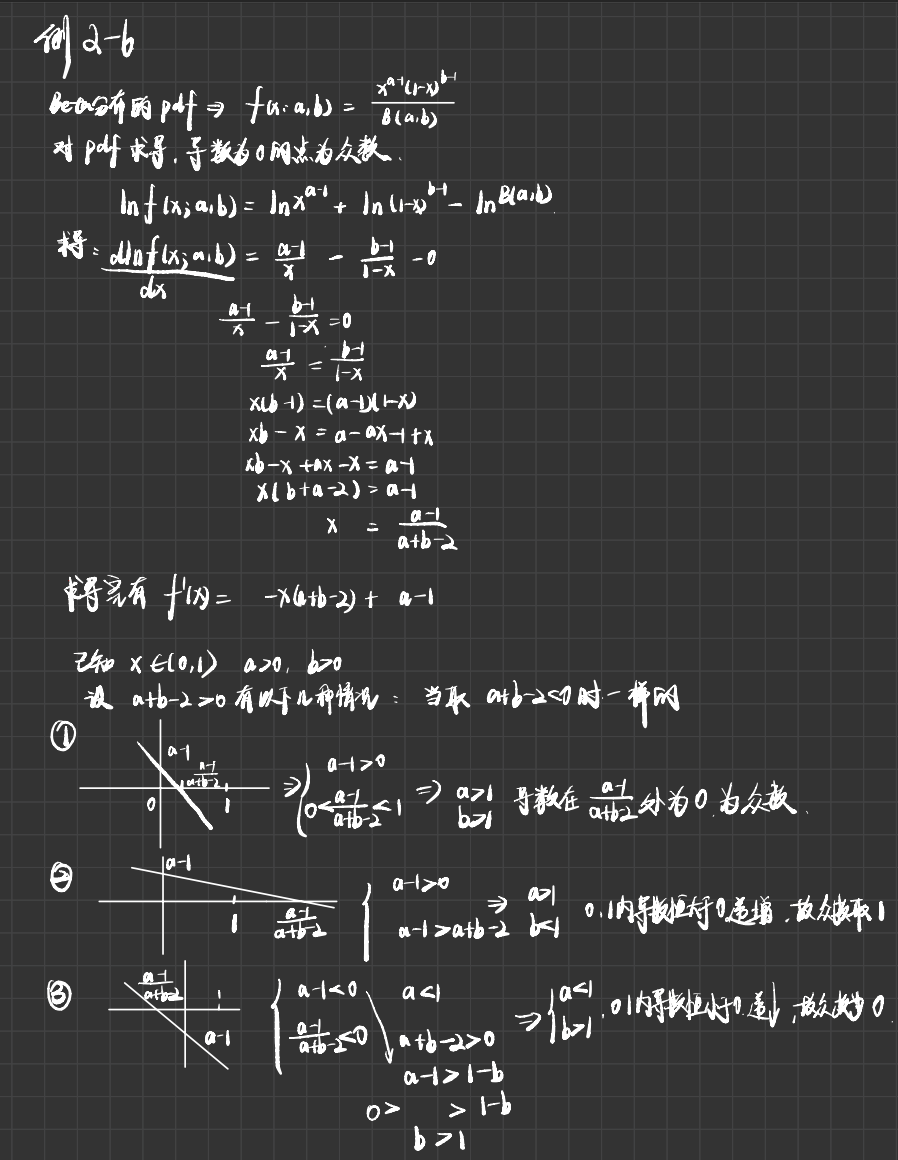 例 2-6
Beta分布的 pdf ⇒ f(x; a,b) = x^{a-1}(1-x)^{b-1} / B(a,b)
对 pdf 求导，导数为0的点为众数.
ln f(x; a,b) = ln x^{a-1} + ln (1-x)^{b-1} - ln B(a,b)
求导: d ln f(x; a,b) / dx = (a-1)/x - (b-1)/(1-x) - 0
(a-1)/x - (b-1)/(1-x) = 0
(a-1)/x = (b-1)/(1-x)
x(b-1) = (a-1)(1-x)
xb - x = a - ax - 1 + x
xb - x + ax - x = a-1
x(b+a-2) = a-1
x = (a-1)/(a+b-2)
求导完有 f'(x) = -x(a+b-2) + a-1
已知 x∈(0,1) a>0, b>0
设 a+b-2>0 有以下几种情况: 当取 a+b-2<0 时一样的
① a-1 (a-1)/(a+b-2) 0 1 ⇒ { a-1>0 0<(a-1)/(a+b-2)<1 ⇒ a>1 b>1 导数在 (a-1)/(a+b-2) 处为0 为众数.
② a-1 1 (a-1)/(a+b-2) { a-1>0 a-1>a+b-2 ⇒ a>1 b<1 0,1内导数恒大于0 递增, 故众数取1
③ (a-1)/(a+b-2) 1 a-1 { a-1<0 (a-1)/(a+b-2)<0 a<1 a+b-2>0 ⇒ { a<1 b>1 , 0,1内导数恒小于0 递↓, 故众数为0
a-1 > 1-b
0 > > 1-b
b > 1